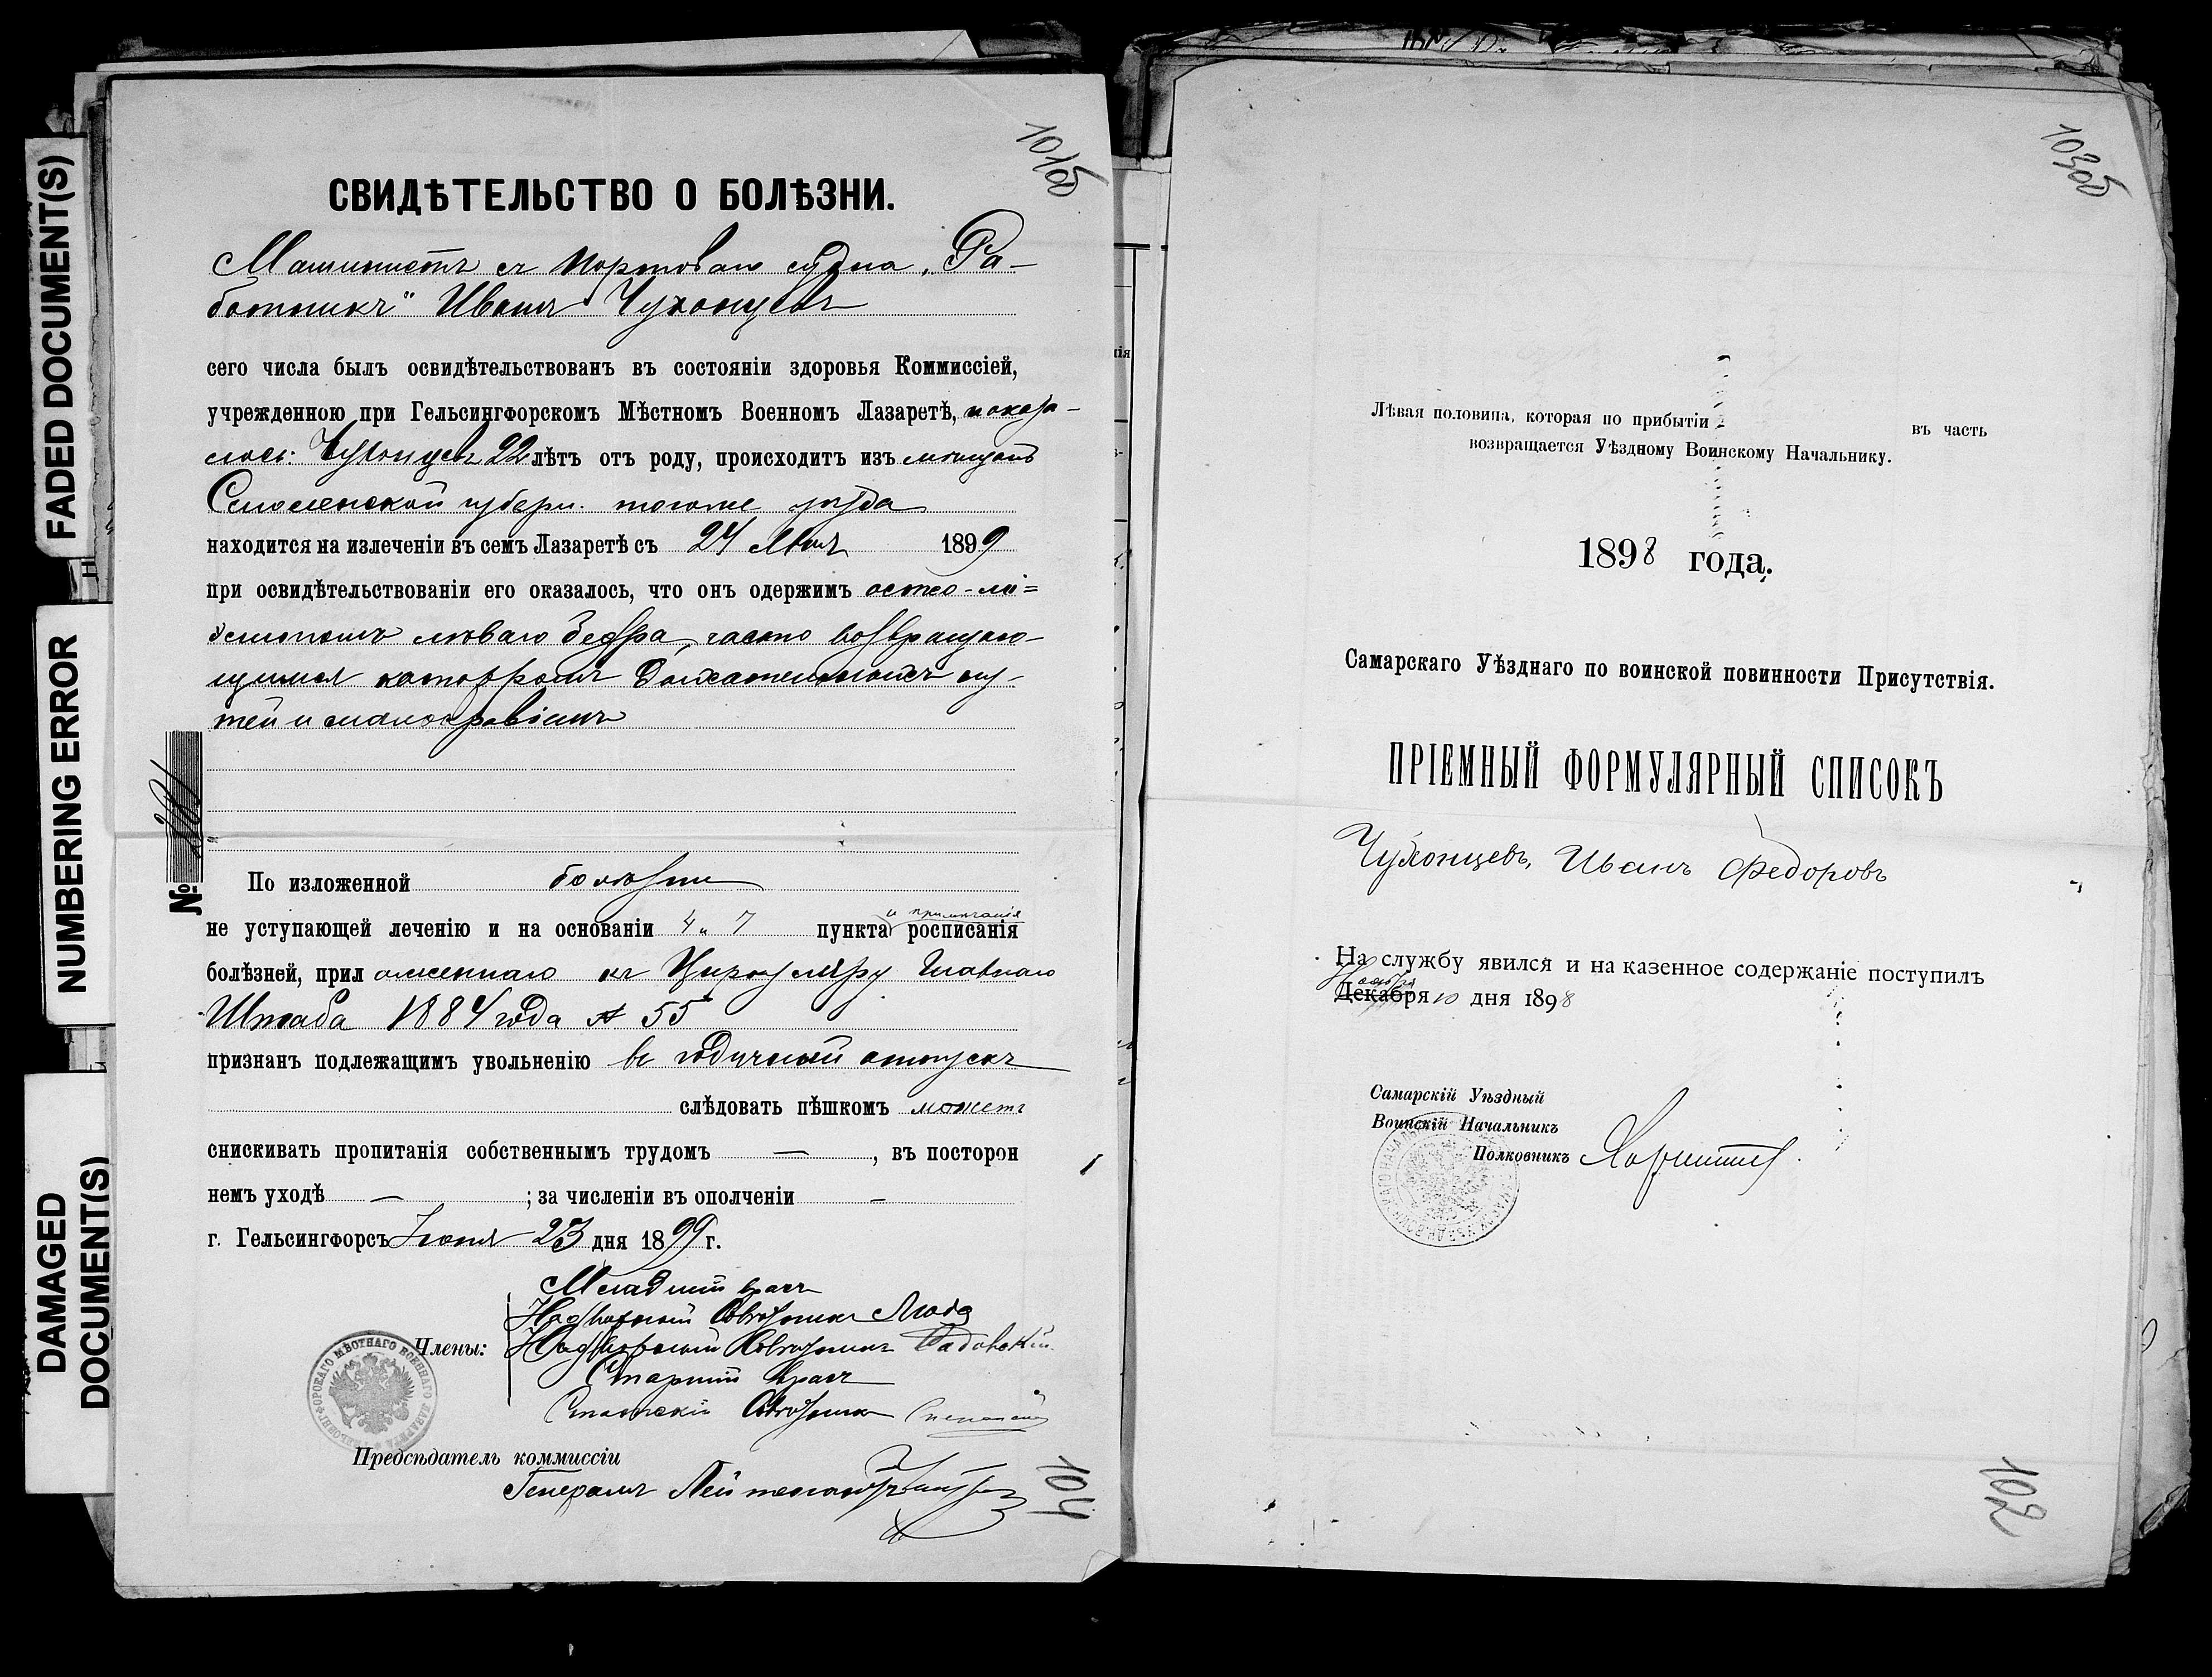 FADED DOCUMENT(S)
NUMBERING ERROR
DAMAGED
DOCUMENT(S)
101об
СВИДѢТЕЛЬСТВО О БОЛѢЗНИ.
Машинистъ съ портоваго судна „Ра-
ботникъ" Иванъ Чухонцевъ
сего числа былъ освидѣтельствованъ въ состояніи здоровья Коммиссіей,
учрежденною при Гельсингфорскомъ Мѣстномъ Военномъ Лазаретѣ, показа-
лось: Чухонцевъ 22 лѣтъ отъ роду, происходитъ изъ мѣщанъ
Смоленской губерн. тогоже уѣзда
находится на излеченіи въ семъ Лазаретѣ съ 24 1899
при освидѣтельствованіи его оказалось, что онъ одержимъ остео-мі=
элитомъ лѣваго бедра, часто возвращаю-
щимся катарромъ дыхательныхъ пу-
тей и малокровіемъ
№
По изложенной болѣзни
не уступающей леченію и на основаніи 4 и 7 пункта и примѣчанія росписанія
болѣзней, приложеннаго къ Циркуляру Главнаго
Штаба 1884 года № 55
признанъ подлежащимъ увольненію въ годичный отпускъ
слѣдовать пѣшкомъ можетъ
снискивать пропитанія собственнымъ трудомъ — , въ посторон
немъ уходѣ — ; за численіи въ ополченіи -
г. Гельсингфорсъ Іюня 23 дня 1899 г.
Младшій врачъ
Надворный Совѣтникъ
Члены: Надворный Совѣтникъ Садовскій
Старшій врачъ
Статскій Совѣтникъ
Предсѣдатель коммиссіи
Генералъ Лейтенантъ
104
103об
Лѣвая половина, которая по прибытіи въ часть
возвращается Уѣздному Воинскому Начальнику.
1898 года.
Самарскаго Уѣзднаго по воинской повинности Присутствія.
ПРІЕМНЫЙ ФОРМУЛЯРНЫЙ СПИСОКЪ
Чухонцевъ, Иванъ Федоровъ
На службу явился и на казенное содержаніе поступилъ
Ноября
Декабря 10 дня 1898
Самарскій Уѣздный
Воинскій Начальникъ
Полковникъ
102